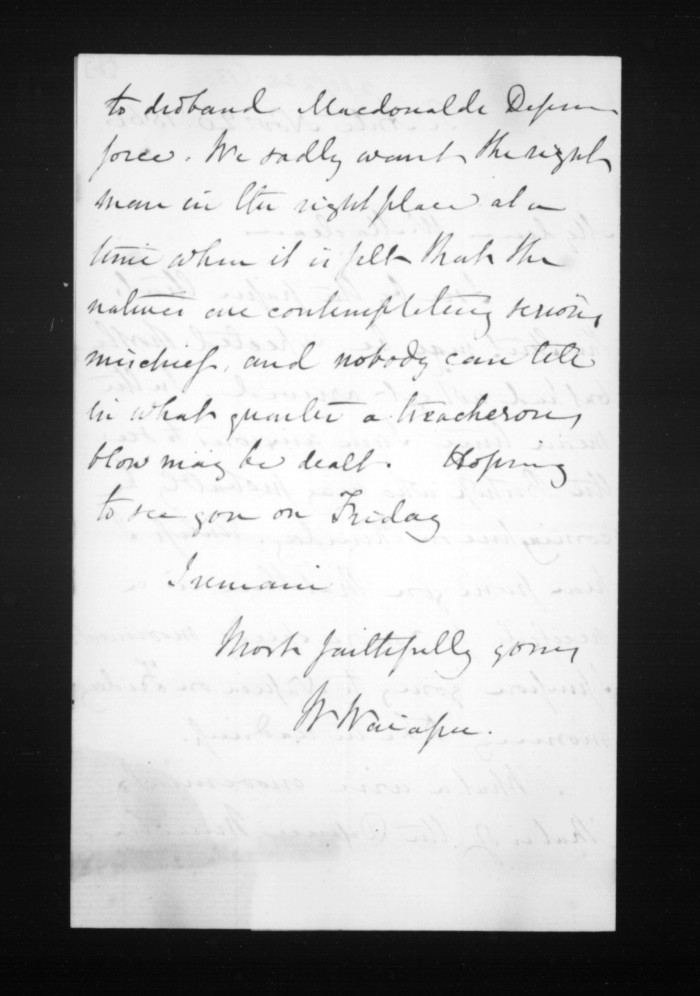 to disband Macdonalds Defence
force. We sadly want the right
man in the right place at a
time when it is felt that the
natives are contemplating serious
mischief, and nobody can tell
in what quarter a treacherous
blow may be dealt. Hoping
to see you on Friday
I remain
Most faithfully yours
W Waiapu.